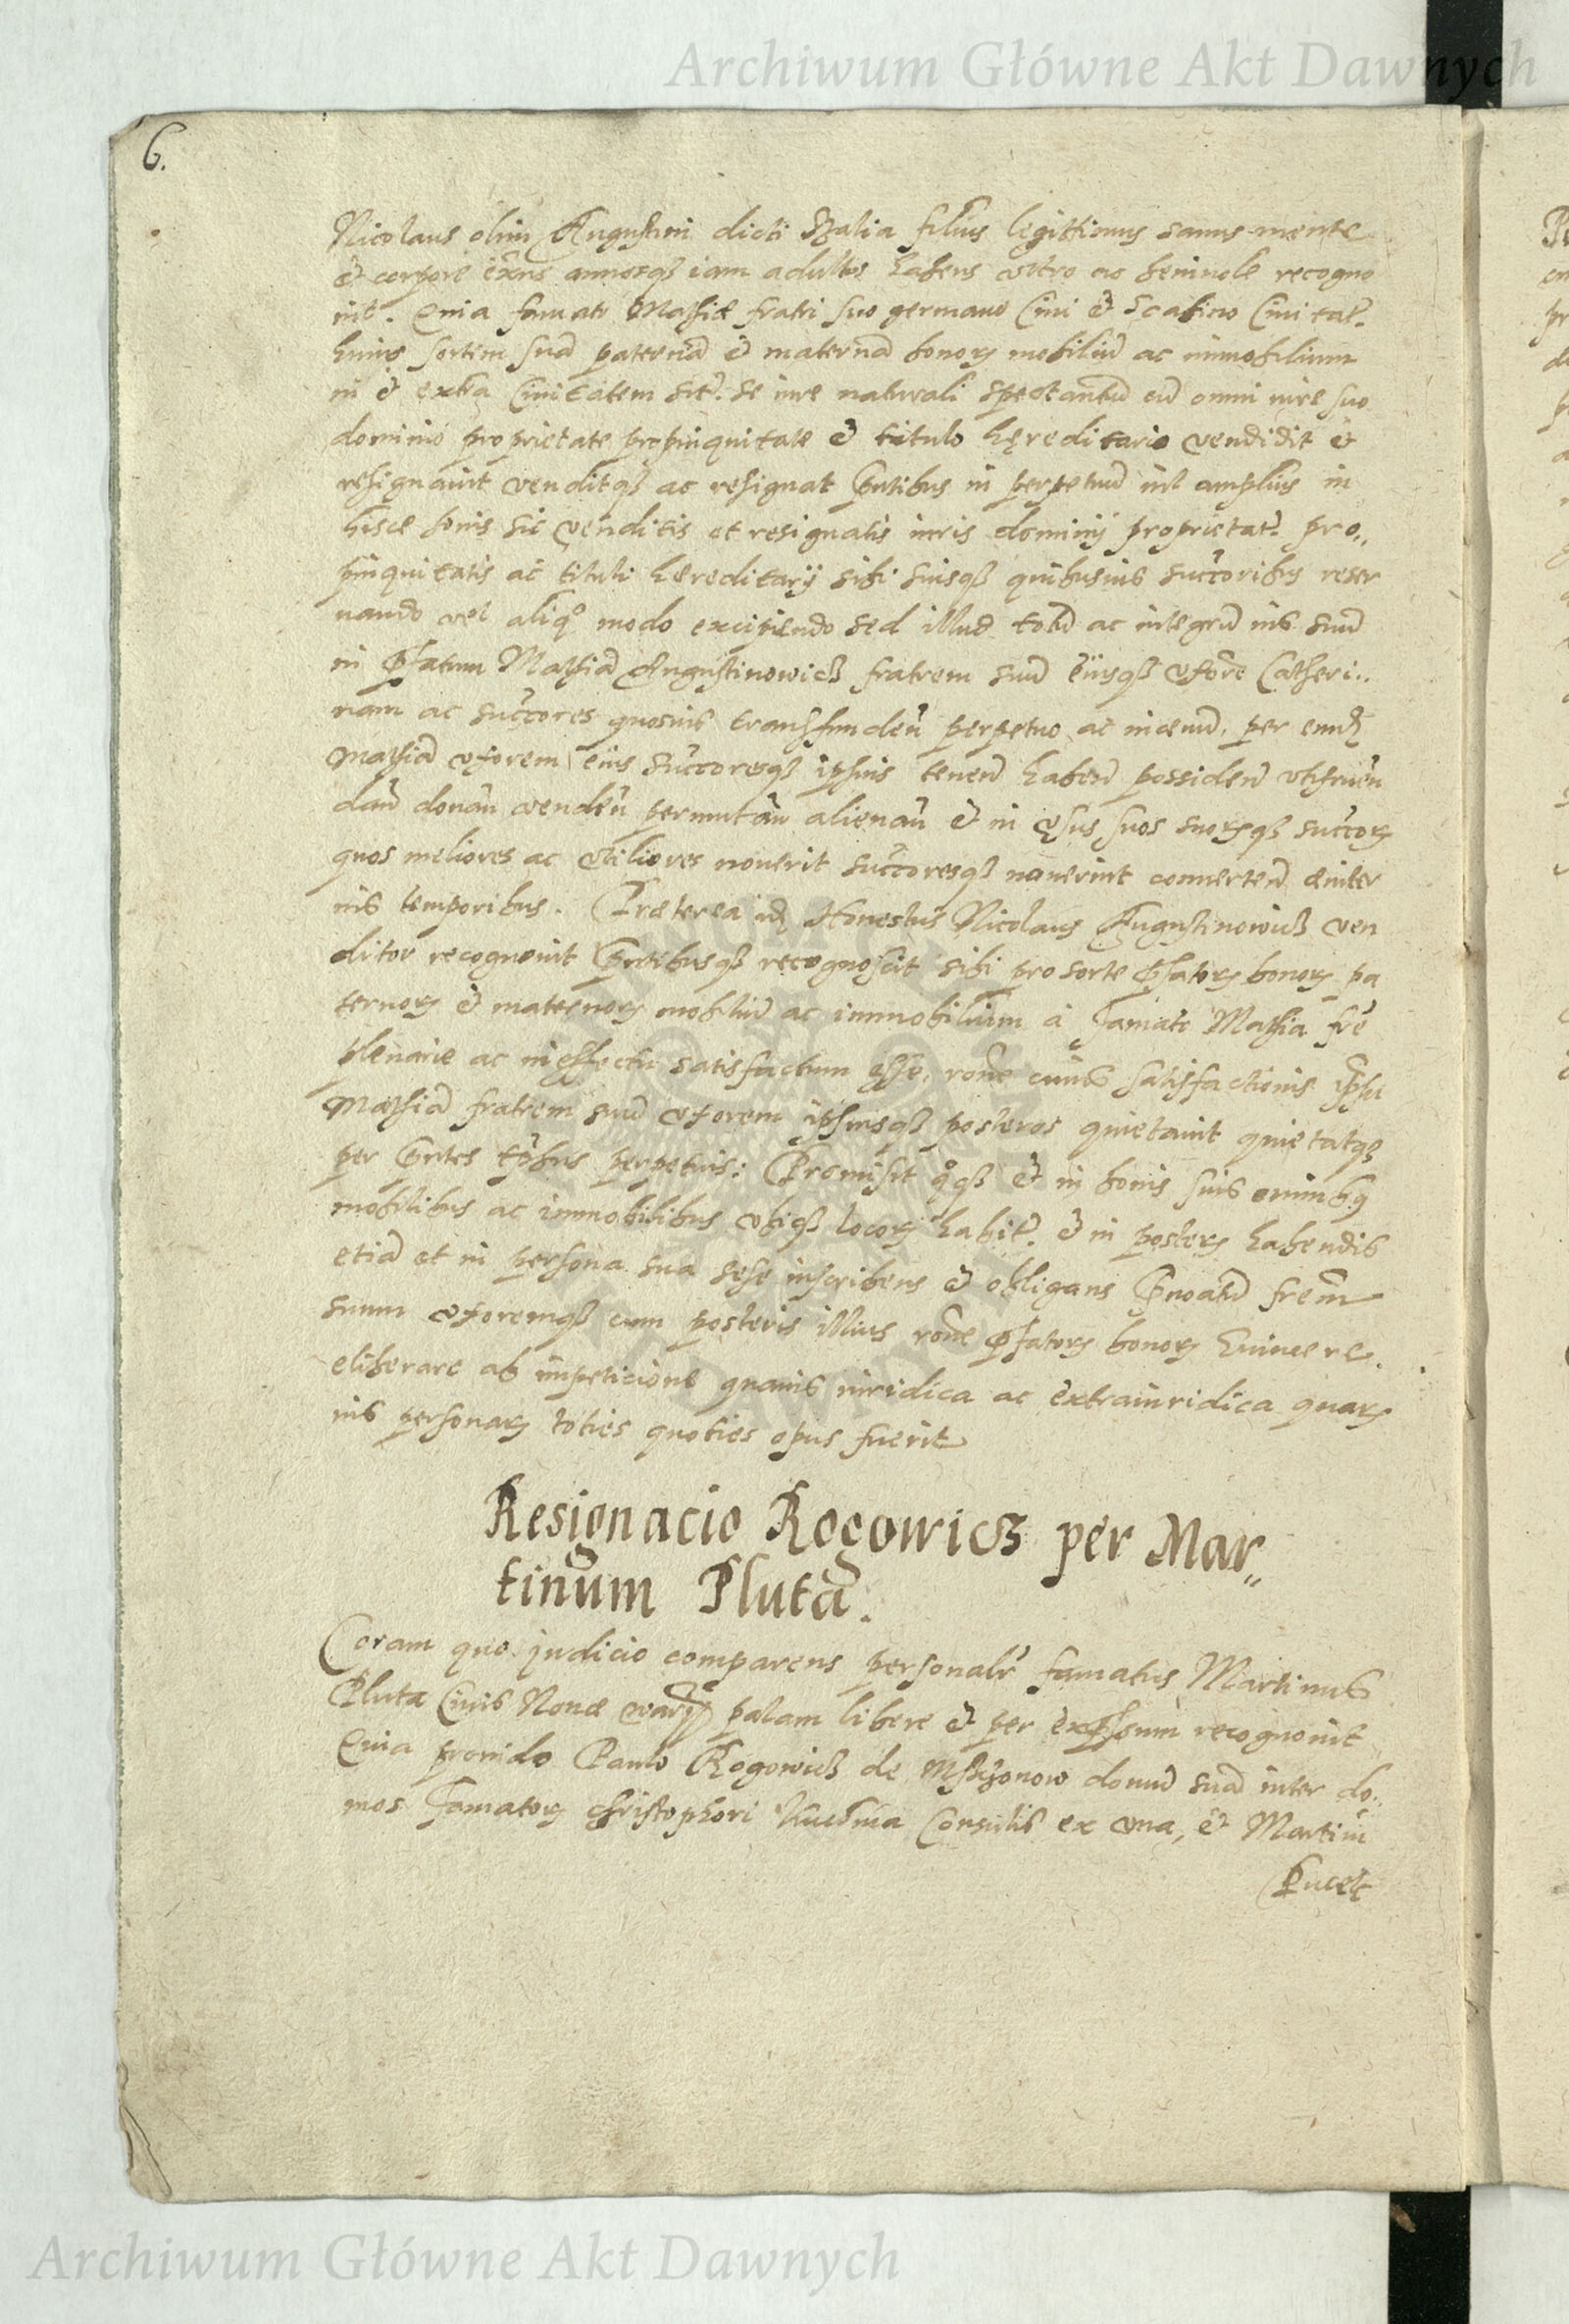 Archiwum Główne Akt Dawnych
6.
Nicolaus olim Augustini dicti Szalia filius legittimus sanus mente
& corpore exñs annosqȝ iam adultos habens vltro ac beniuole recogno
uit. Quia famato Mathiæ fratri suo germano Ciui & Scabino Ciuitat̃.
huius sortem suã paternã & maternã bonorꝝ mobiliũ ac immobilium
in & extra Ciuitatem sit̃. se iure naturali spectantẽ cũ omni iure suo
dominio proprietate propinquitate & titulo hęreditario vendidit &
resignauit venditqȝ ac resignat p̃ntibus in perpetuũ nil amplius in
hisce bonis sic venditis et resignatis iuris dominij proprietat̃. pro„
pinquitatis ac tituli hereditarij sibi suisqȝ quibusuis succ̃oribus reser
uando vel aliqº modo excipiendo sed illud totũ ac integrũ ius suũ
in p̃fatum Mathiã Augustinowicz fratrem suũ eiusqȝ vxorẽ Catheri„
nam ac succ̃ores quosuis transfundeñ perpetuo ac in æuũ. per eundꝫ
Mathiã vxorem eius succ̃oresqȝ ipsius teneñ habeñ possideñ vtifrueñ
dañ donañ vendeñ permutañ alienañ & in vsus suos suorꝝqȝ succ̃orꝝ
quos meliores ac vtiliores nouerit succ̃oresqȝ nouerint conuerteñ æuiter
nis temporibus. Præterea idꝫ Honestus Nicolaus Augustinowicz ven
ditor recognouit p̃ntibusqȝ recognoscit sibi pro sorte p̃fatorꝝ bonorꝝ pa
ternorꝝ & maternorꝝ mobiliũ ac immobilium à famato Mathia frẽ
plenarie ac in effectu satisfactum esse, rõne cuius satisfactionis ip̃m
Mathiã fratrem suũ vxorem ipsiusqȝ posteros quietauit quietatqȝ
per p̃ntes tp̃ibus perpetuis: Promisit qºqȝ & in bonis suis omnibꝰ
mobilibus ac immobilibus vbiqȝ locorꝝ habit̃. & in posterꝝ habendis
etiã et in persona sua sese inscribens & obligans p̃noatũ frẽm
suum vxoremqȝ cum posteris illius rõne p̃fatorꝝ bonorꝝ Euincere
eliberare ab impeticione quauis iuridica ac extraiuridica quarꝝ
uis personarꝝ toties quoties opus fuerit
Resignacio Rogowicz per Mar„
tinum Plutã.
Coram quo judicio comparens personalr̃ famatus Martinus
Pluta Ciuis Nouæ Warsꝫ palam libere & per exp̃ssum recognouit
Quia prouido Paulo Rogowicz de Msczonow domũ suã inter do„
mos famatorꝝ Christophori Kuchnia Consulis ex vna, & Martini
Pucek
Archiwum Główne Akt Dawnych